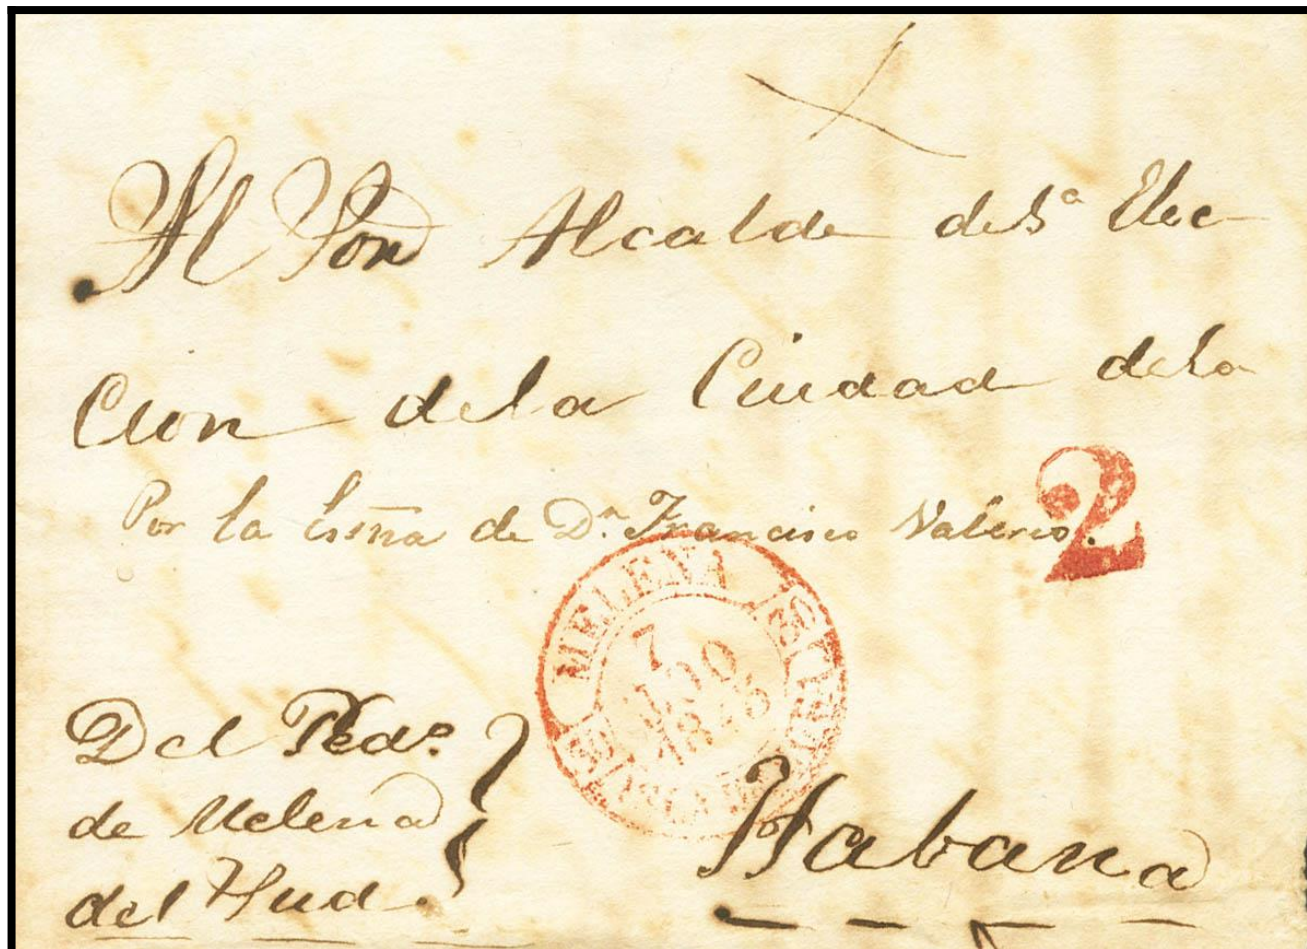 Al Sor Alcalde de 1ª Elec-
cion de la Ciudad de la
Por la Essna de Dn. Francisco Valerio.
2
MELENA
7
AGO
1848
Del Pedo.
de Melena
del Sud.
Habana